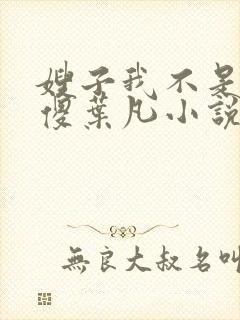 嫂子我不是
傻葉凡小説
無良大叔名叫